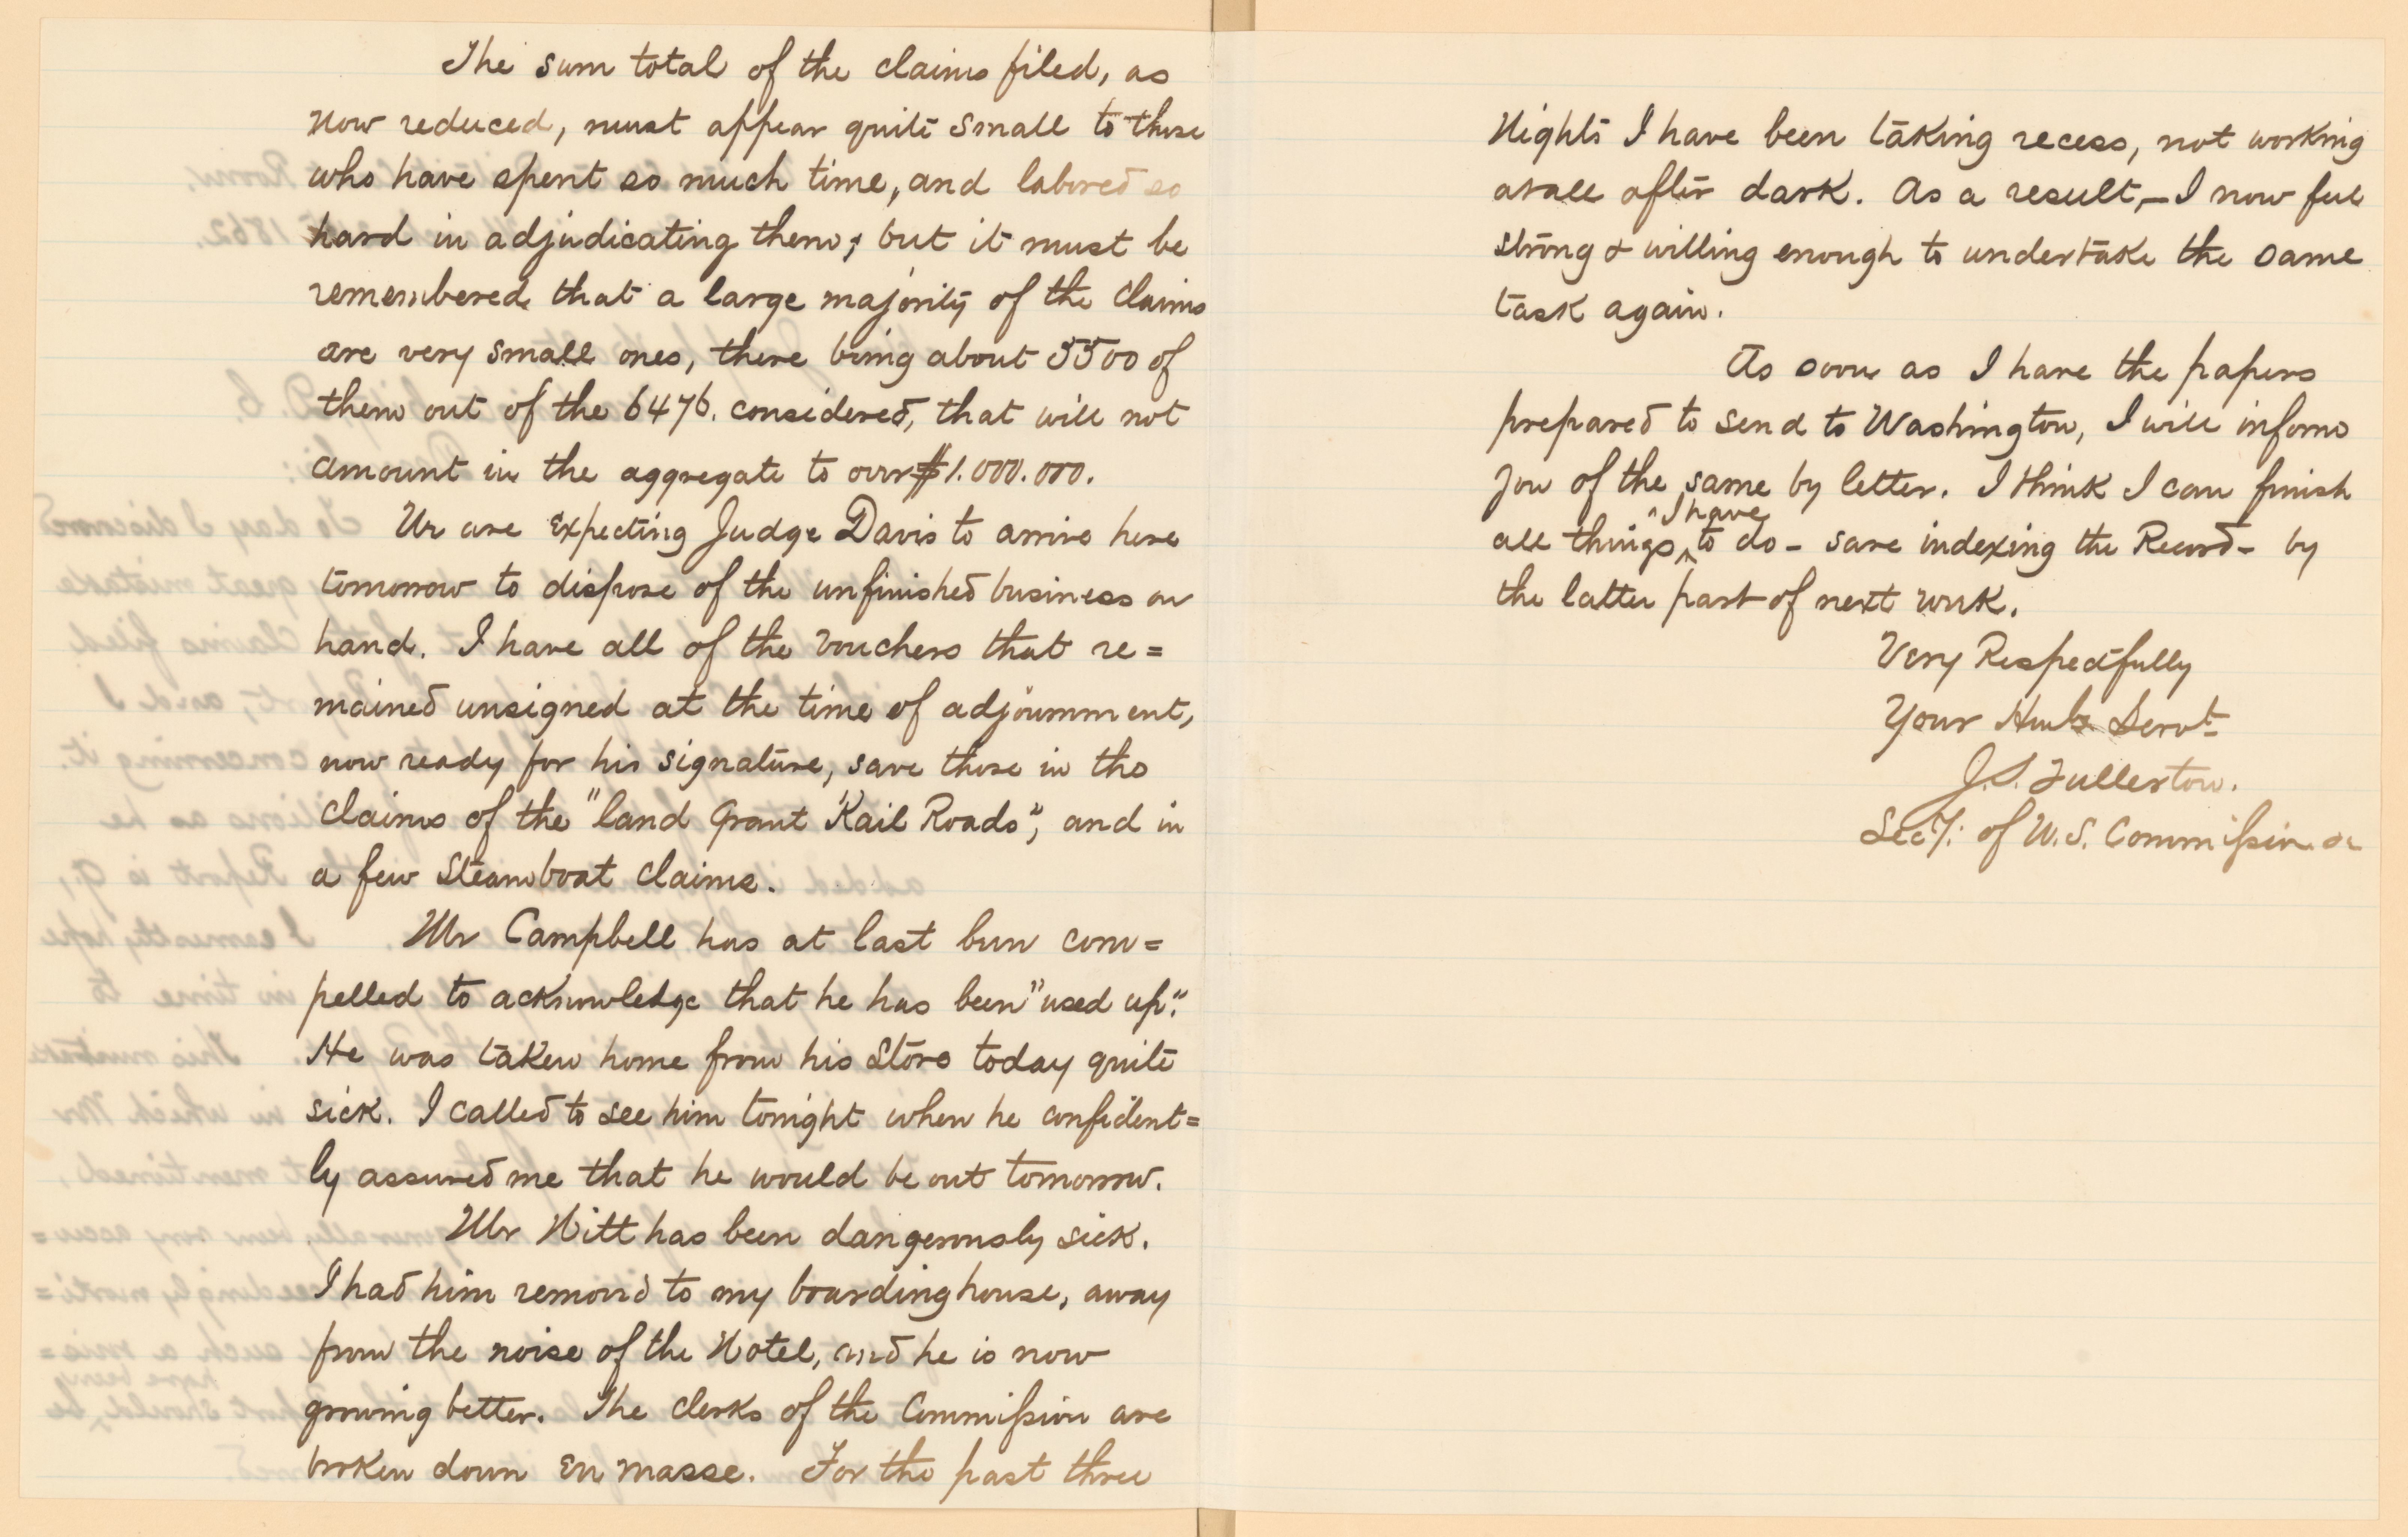 The sum total of the claims filed, as
now reduced, must appear quite small to those
who have spent so much time, and labored so
hard in adjudicating them; but it must be
remembered that a large majority of the claims
are very small ones, there being about 5500 of
them out of the 6476. considered, that will not
amount in the aggregate to over $1.000.000.
We are expecting Judge Davis to arrive here
tomorrow to dispose of the unfinished business on
hand. I have all of the vouchers that re=
mained unsigned at the time of adjournment,
now ready for his signature, save those in the
claims of the "land Grant Rail Roads", and in
a few Steamboat claims.
Mr Campbell has at last been com=
pelled to acknowledge that he has been "used up".
He was taken home from his Store today quite
sick. I called to see him tonight when he confident=
ly assured me that he would be out tomorrow.
Mr Hitt has been dangerously sick.
I had him removed to my boarding house, away
from the noise of the Hotel, and he is now
growing better. The clerks of the Commission are
broken down en masse. For the past three
Nights I have been taking recess, not working
at all after dark. As a result,— I now feel
strong & willing enough to undertake the same
task again.
As soon as I have the papers
prepared to send to Washington, I will inform
you of the same by letter. I think I can finish
all things I have to do – save indexing the Record – by
the latter part of next week.
Very Respectfully
Your Humb Servt
J.S. Fullerton.
Secy: of U.S. Commission &c